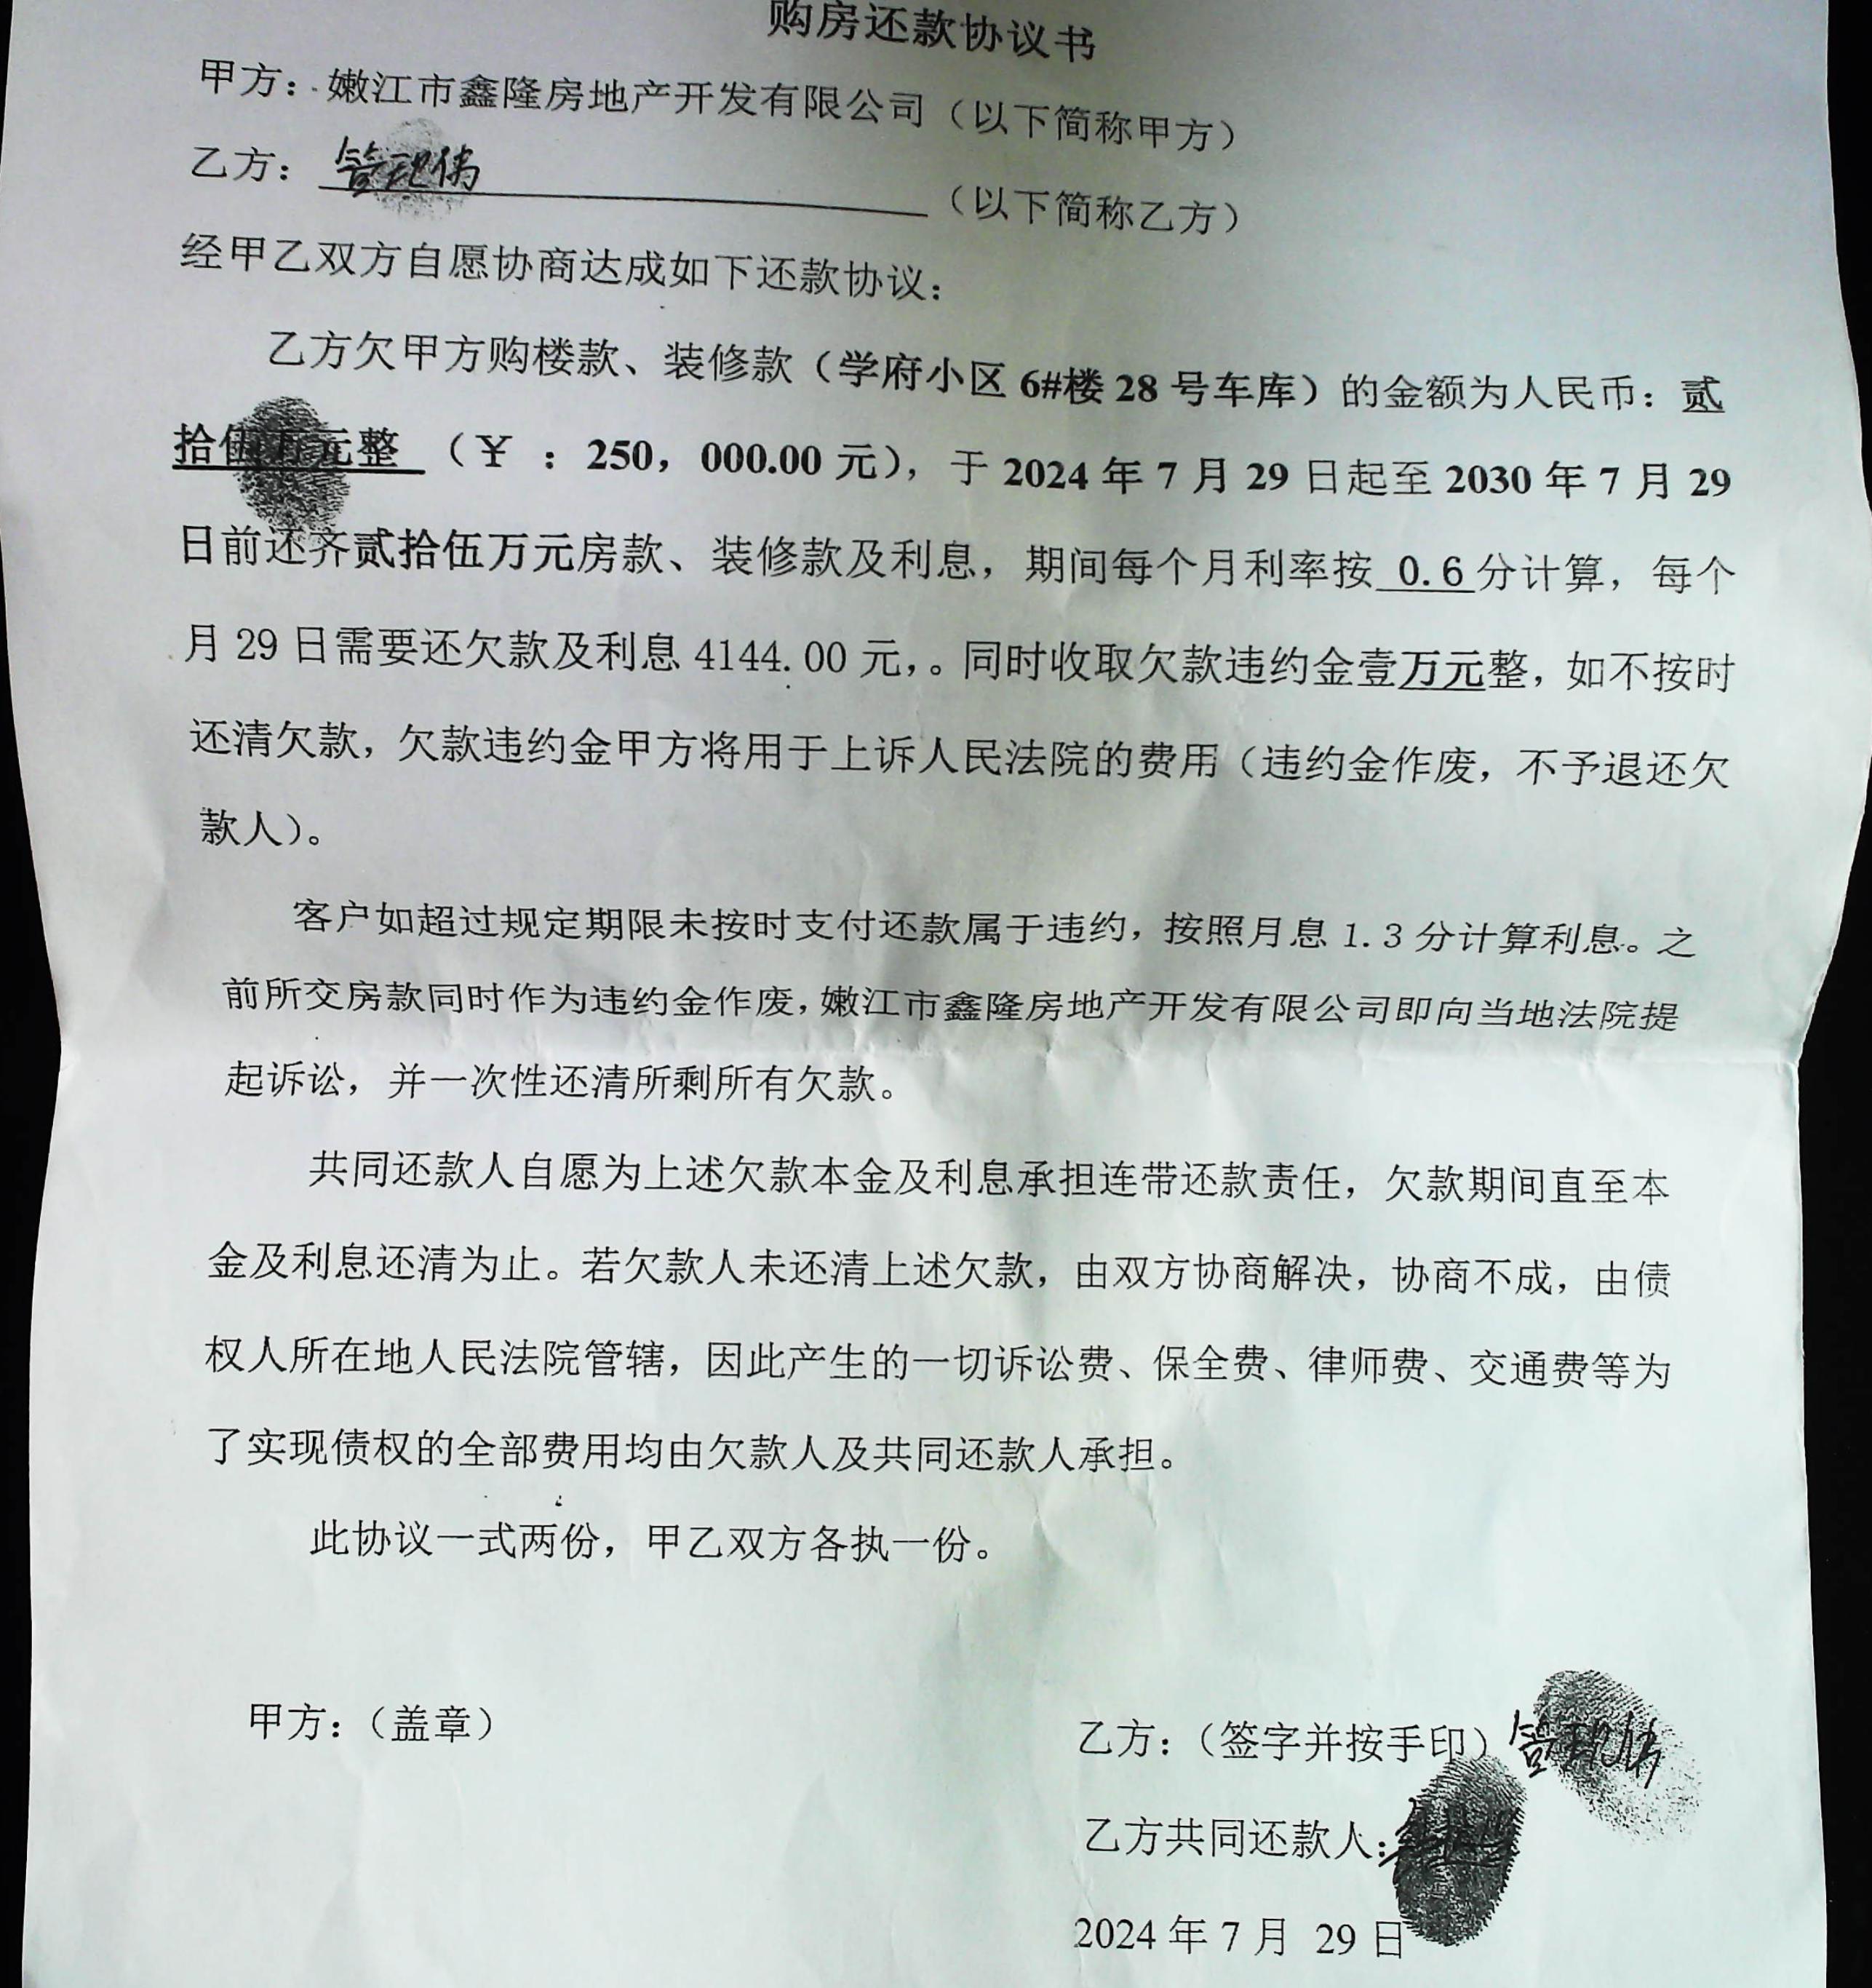 购房还款协议书
甲方：嫩江市鑫隆房地产开发有限公司（以下简称甲方）
乙方：管现伟（以下简称乙方）
经甲乙双方自愿协商达成如下还款协议：
乙方欠甲方购楼款、装修款（学府小区 6#楼 28 号车库）的金额为人民币：贰
拾伍万元整 （￥ ：250，000.00 元），于 2024 年 7 月 29 日起至 2030 年 7 月 29
日前还齐贰拾伍万元房款、装修款及利息，期间每个月利率按 0.6 分计算，每个
月 29 日需要还欠款及利息 4144.00 元，。同时收取欠款违约金壹万元整，如不按时
还清欠款，欠款违约金甲方将用于上诉人民法院的费用（违约金作废，不予退还欠
款人）。
客户如超过规定期限未按时支付还款属于违约，按照月息 1.3 分计算利息。之
前所交房款同时作为违约金作废，嫩江市鑫隆房地产开发有限公司即向当地法院提
起诉讼，并一次性还清所剩所有欠款。
共同还款人自愿为上述欠款本金及利息承担连带还款责任，欠款期间直至本
金及利息还清为止。若欠款人未还清上述欠款，由双方协商解决，协商不成，由债
权人所在地人民法院管辖，因此产生的一切诉讼费、保全费、律师费、交通费等为
了实现债权的全部费用均由欠款人及共同还款人承担。
此协议一式两份，甲乙双方各执一份。
甲方：（盖章）
乙方：（签字并按手印）管现伟
乙方共同还款人：
2024 年 7 月 29 日